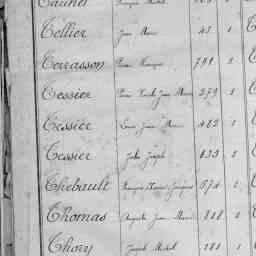 Tellier Jean Marie 43 1
Terrasson Pierre 791 1
Tessier Pierre Jean Marie 279 1
Tessier Louis Jean Marie 482 1
Tessier Jules Joseph 833 1
Thébault François Jacques 574 1
Thomas Auguste Jean Marie 818 1
Thory Joseph Michel 181 1